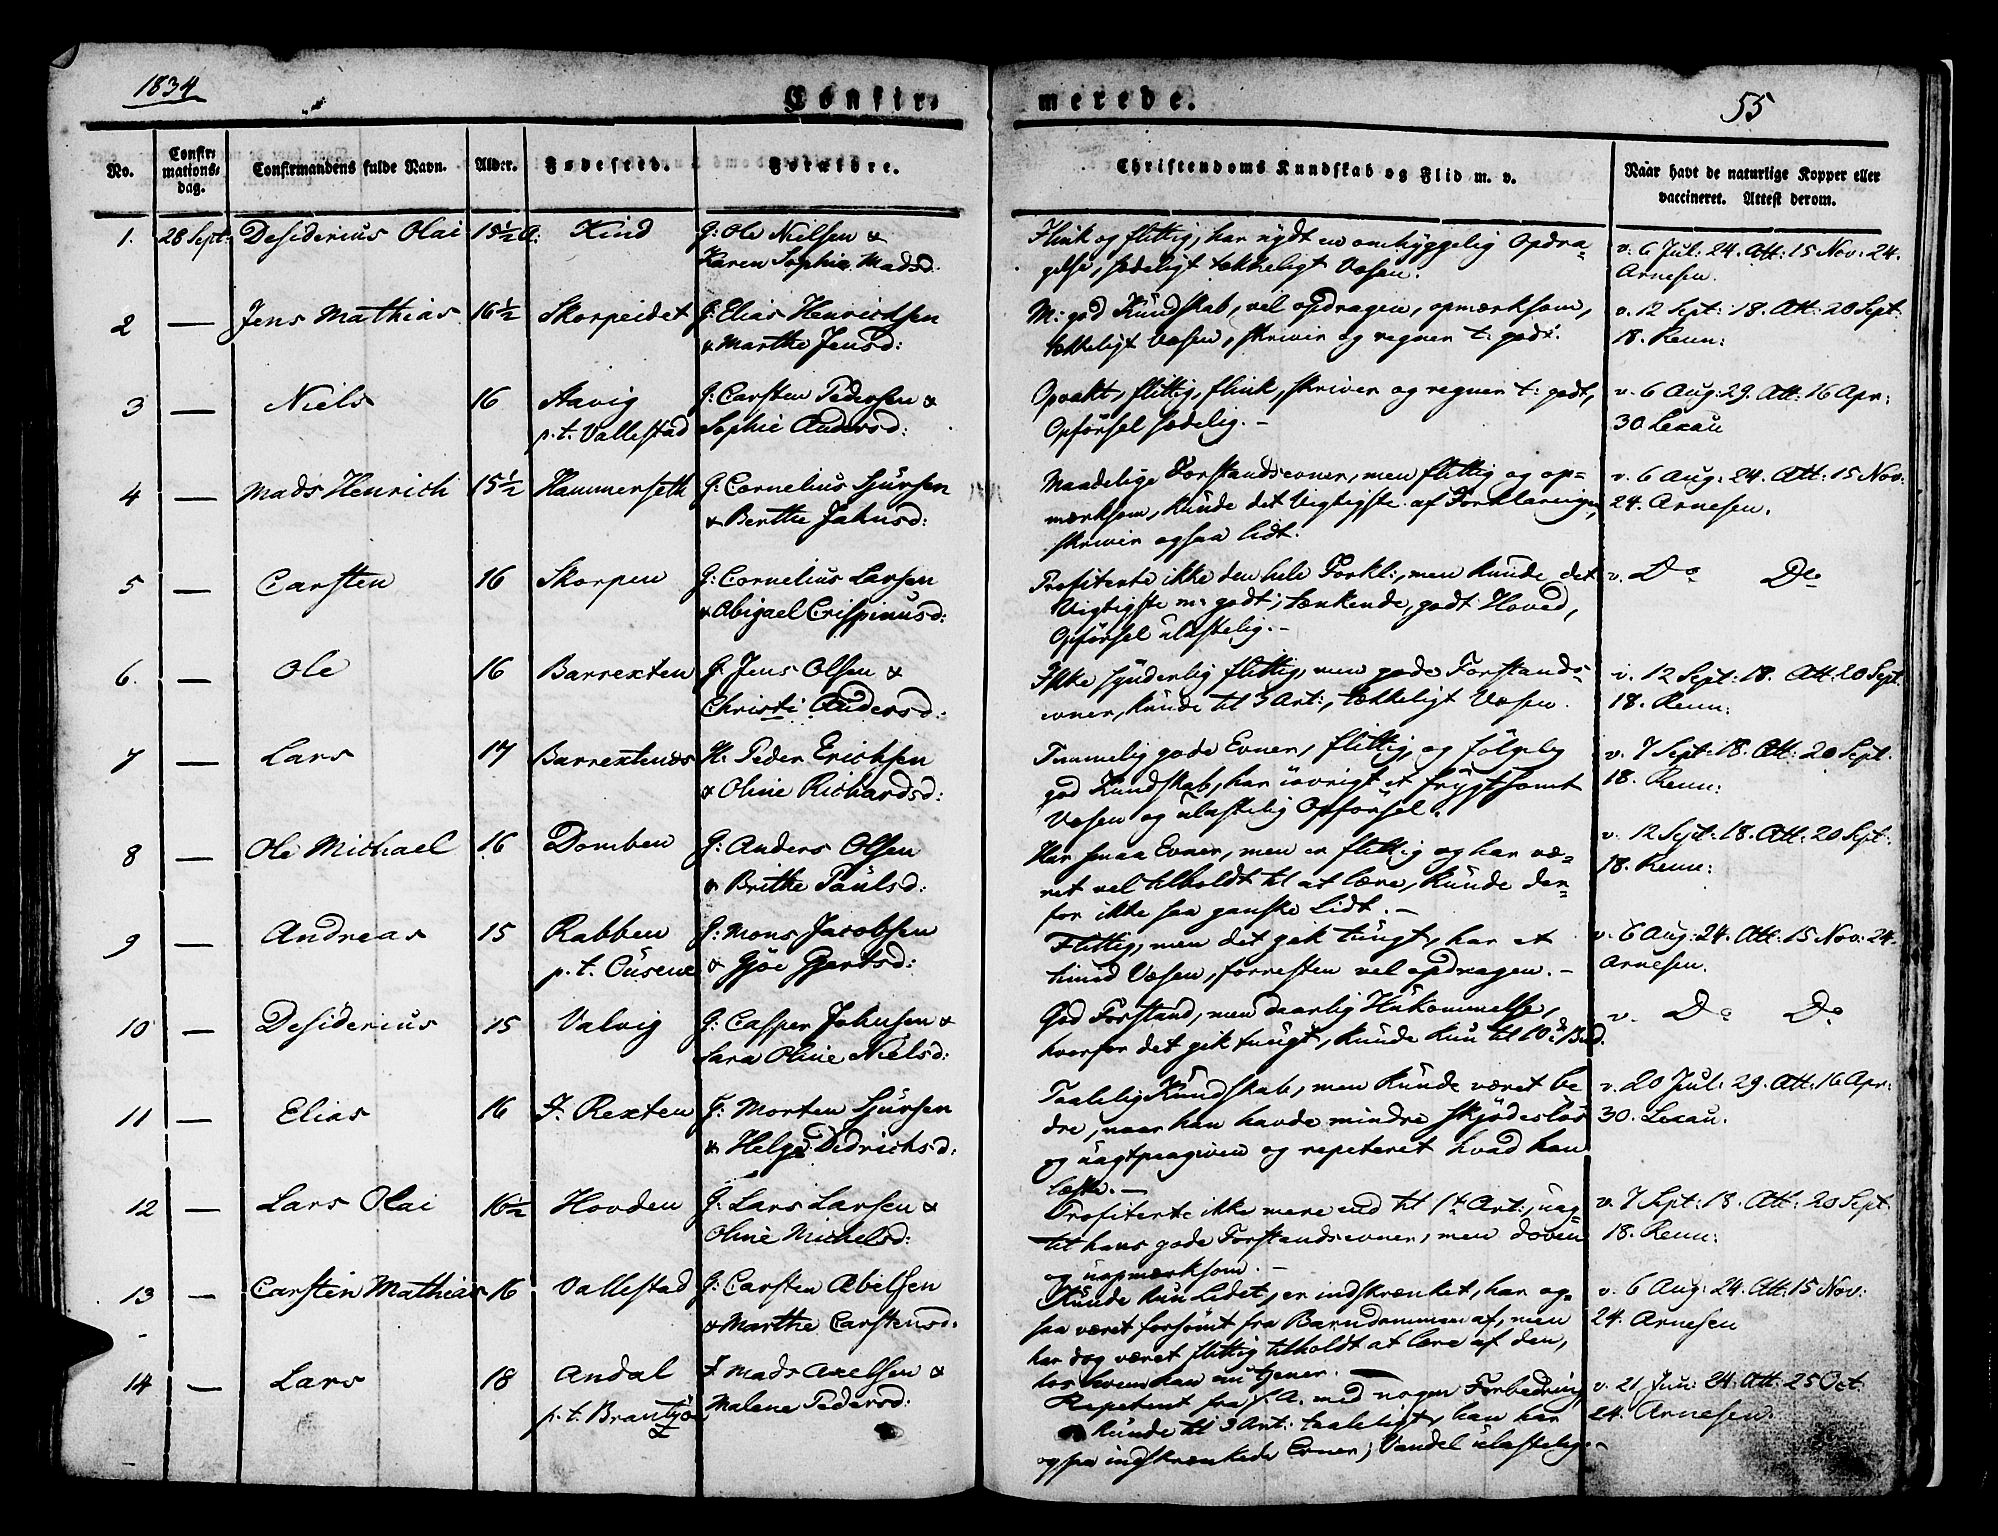 1834
Confir-
merede.
55
No.
Confir-
mations-
dag.
Confirmandens fulde Navn.
Alder.
Fødested.
Forældre.
Christendoms Kundskab og Flid m. v.
Naar havt de naturlige Kopper eller
vaccineret. Attest derom.
1. 28 Sept: Desiderius Olai 15½ A: Kind G: Ole Nielsen &
Karen Sophie Madsd:
Flink og flittig, har nydt en omhyggelig Opdra-
gelse, sædeligt tækkeligt Væsen.
v. 6 Jul: 24. Att: 15 Nov: 24.
Arnesen.
2 — Jens Mathias 16½ Skorpeidet G: Elias Henrichsen
& Marthe Jensd:
M: god Kundskab, vel opdragen, opmærksom,
tækkeligt Væsen, skriver og regner t: godt.
v. 12 Sept: 18. Att: 20 Sept:
18. Renn:
3 — Niels 16 Aavig G: Carsten Pedersen &
p.t. Vallestad Sophie Andersd:
Opvakt, flittig, flink, skriver og regner t: godt,
Opførsel sædelig. —
v. 6 Aug: 29. Att: 16 Apr:
30. Lexau
4 — Mads Henrich 15½ Hammerseth G: Cornelius Sjursen
& Berthe Jahnsd:
Maadelige Forstandsevner, men flittig og op-
mærksom, kunde det Vigtigste af Forklaringen,
skriver ogsaa lidt.
v. 6 Aug: 24. Att: 15 Nov:
24. Arnesen.
5 — Carsten 16 Skorpen G: Cornelius Larsen
& Abigael Crispinusd:
Profiterte ikke den hele Forkl:, men kunde det
Vigtigste m: godt; tænkende, godt Hoved,
Opførsel ulastelig. —
v. Do Do
6. — Ole 16 Barrexten G: Jens Olsen &
Christi Andersd:
Ikke synderlig flittig, men gode Forstands-
evner, kunde til 3 Art:, tækkeligt Væsen.
v. 12 Sept: 18. Att: 20 Sept:
18. Renn:
7 — Lars 17 Barrextenæs H: Peder Erichsen
& Oline Richardsd:
Temmelig gode Evner, flittig, og følgelig
god Kundskab, har iøvrigt et frygtsomt
Væsen og ulastelig Opførsel.
v. 7 Sept: 18. Att: 20 Sept.
18. Renn:
8 — Ole Michael 16 Domben G: Anders Olsen
& Brithe Paulsd:
Har smaa Evner, men er flittig og har væ-
ret vel tilholdt til at lære, kunde der-
for ikke saa ganske Lidt. —
v. 12 Sept: 18. Att: 20 Sept:
18. Renn:
9 — Andreas 15 Rabben G: Mons Jacobsen
p.t. & Gjøe Gjertsd:
Flittig, men det gik tungt, har et
timid Væsen, forresten vel opdragen. —
v. 6 Aug: 24. Att: 15 Nov: 24.
Arnesen.
10 — Desiderius 15 Valvig G: Casper Johnsen &
Sara Oline Nielsd:
God Forstand, men daarlig Hukommelse,
hvorfor det gik tungt, kunde kun til 10de Bud.
v. Do Do
11 — Elias 16 I. Rexten G: Morten Sjursen
& Helge Didrichsd:
Taalelig Kundskab, men kunde været be
dre, naar han havde mindre skjødesløs
og uagtpaagiven og repeteret hvad han
læste. —
v. 20 Jul: 29. Att: 16 Apr:
30. Lexau.
12 — Lars Olai 16½ Hovden G: Lars Larsen &
Oline Michelsd:
Profiterte ikke mere end til 1ste Art:, uag-
tet hans gode Forstandsevner, men doven
og uopmærksom. —
v. 7 Sept: 18. Att: 20 Sept
18. Renn:
13 — Carsten Mathias 16 Vallestad G: Carsten Abelsen
& Marthe Carstensd:
Kunde kun Lidet, er indskrænket, har og-
saa været forsømt fra Barndommen af, men
har dog været flittig tilholdt at lære af den,
hos hvem han nu tjener. —
v. 6 Aug: 24. Att: 15 Nov:
24. Arnesen
14 — Lars 18 Andal F. Mads Axelsen &
p.t. Malene Pedersd:
Repetent fra f. A. med nogen Forbedring,
kunde til 3 Art: taaleligt, han har
ogsaa indskrænkede Evner; Vandel ulastelig. —
v. 21 Jun: 24. Att: 25 Oct:
24. Arnesen.